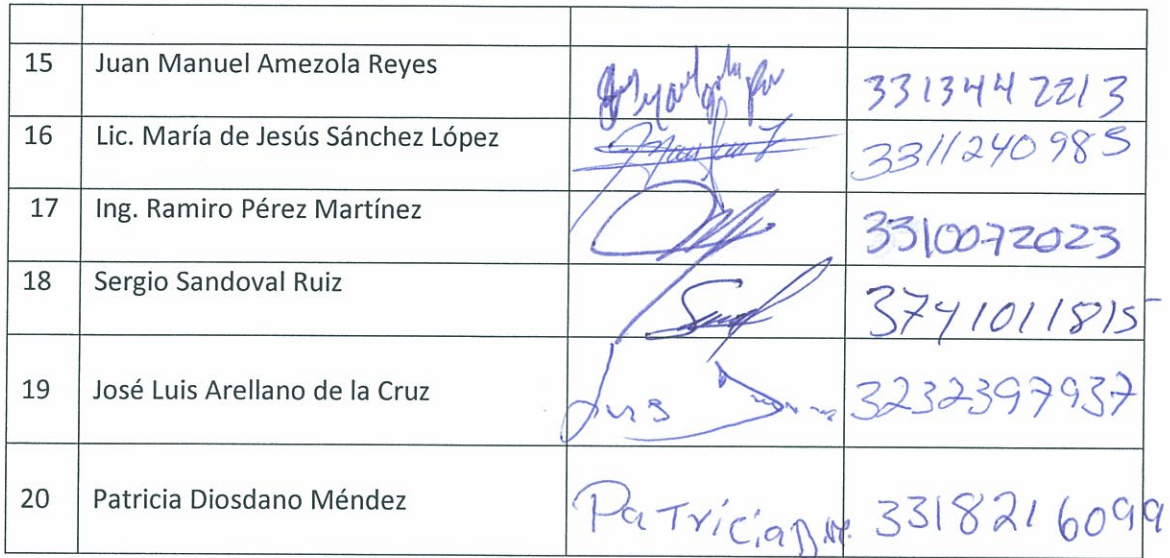 15 Juan Manuel Amezola Reyes 3313442213
16 Lic. María de Jesús Sánchez López 3311240985
17 Ing. Ramiro Pérez Martínez 3310072023
18 Sergio Sandoval Ruiz 3741011815
19 José Luis Arellano de la Cruz Luis 3232397937
20 Patricia Diosdano Méndez Patricia D M. 3318216099